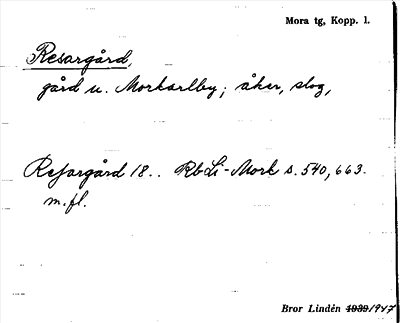 Mora tg, Kopp. l.
Resargård,
gård u. Morkarlby; åker, slog,
Resargård 18.. RbLi-Mork s. 540, 663.
m.fl.
Bror Lindén 1939/1947